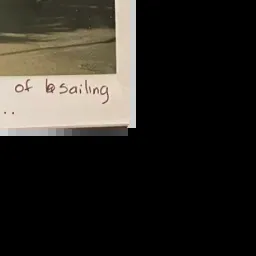 of sailing
..